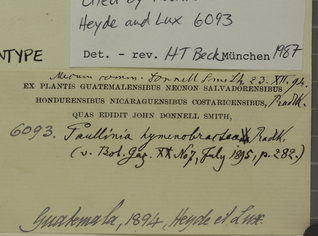 Heyde and Lux 6093
NTYPE
Det. - rev. HT Beck München 1987
Mecum comm. Donnell Smith, 23. XII. 94.
EX PLANTIS GUATEMALENSIBUS NECNON SALVADORENSIBUS
HONDURENSIBUS NICARAGUENSIBUS COSTARICENSIBUS, Radlk.
QUAS EDIDIT JOHN DONNELL SMITH,
6093. Paullinia hymenobractea Radlk
(v. Bot. Gaz. XX No 7, July 1895, p. 282.)
Guatemala, 1894, Heyde et Lux.